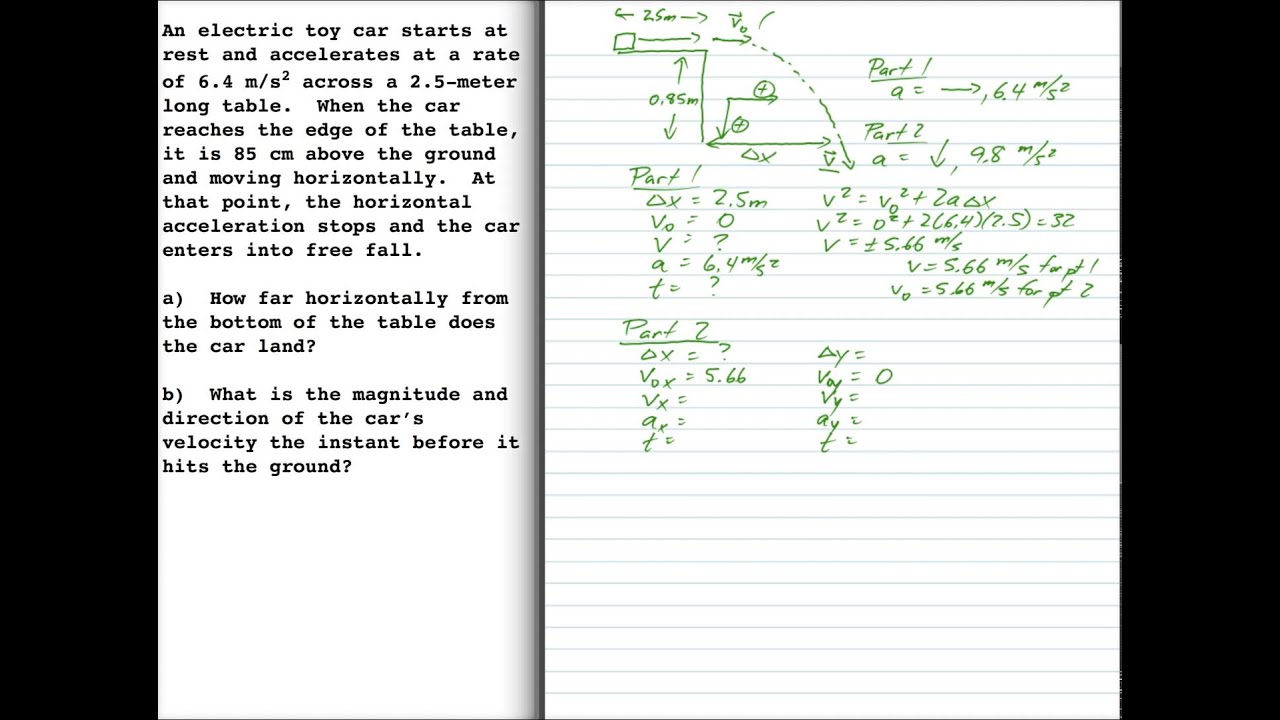 An electric toy car starts at
rest and accelerates at a rate
of 6.4 m/s² across a 2.5-meter
long table. When the car
reaches the edge of the table,
it is 85 cm above the ground
and moving horizontally. At
that point, the horizontal
acceleration stops and the car
enters into free fall.
a) How far horizontally from
the bottom of the table does
the car land?
b) What is the magnitude and
direction of the car's
velocity the instant before it
hits the ground?
← 2.5m →
v⃗₀
0.85m
+
+
Δx
v⃗
Part 1
a = →, 6.4 m/s²
Part 2
a = ↓, 9.8 m/s²
Part 1
Δx = 2.5m
v₀ = 0
v = ?
a = 6.4 m/s²
t = ?
v² = v₀² + 2aΔx
v² = 0² + 2(6.4)(2.5) = 32
v = ± 5.66 m/s
v = 5.66 m/s for pt 1
v₀ = 5.66 m/s for pt 2
Part 2
Δx = ?
v₀ₓ = 5.66
vₓ =
aₓ =
t =
Δy =
v₀y = 0
vy =
ay =
t =